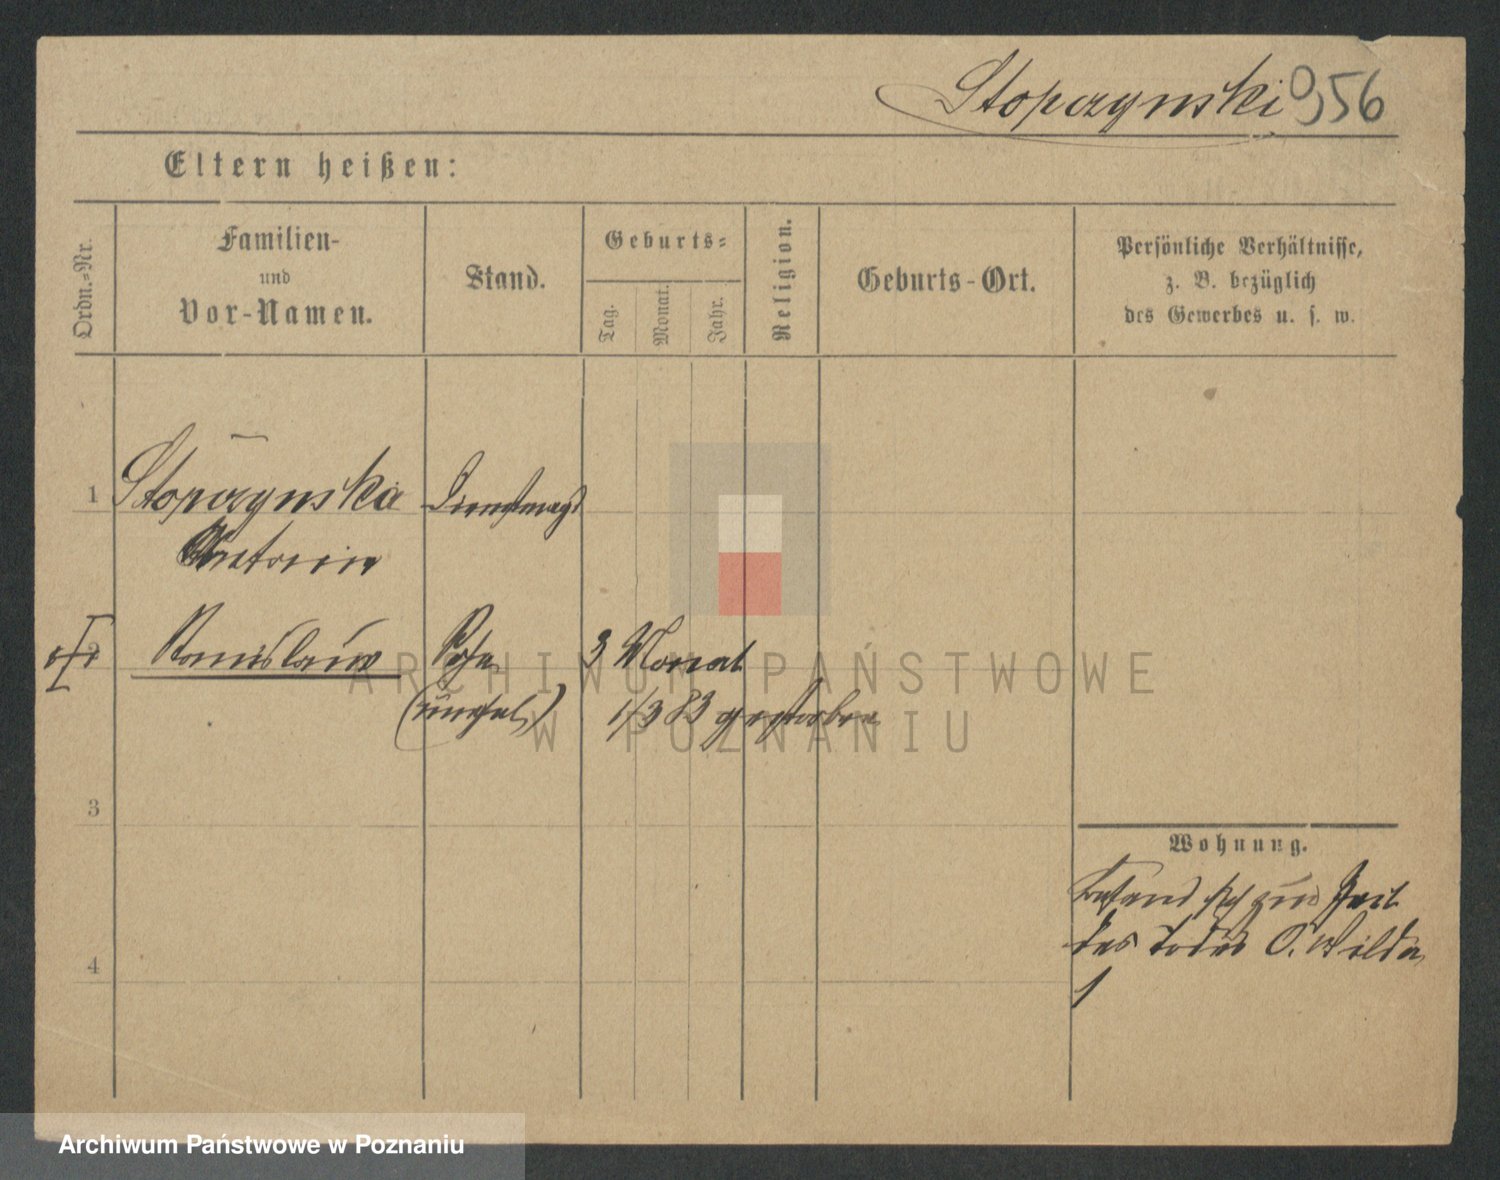 Stopczynski 956
Eltern heißen:
Ordn.-Nr.
Familien-
und
Vor-Namen.
Stand.
Geburts-
Tag.
Monat.
Jahr.
Religion.
Geburts-Ort.
Persönliche Verhältnisse,
z. B. bezüglich
des Gewerbes u. s. w.
1 Stopczynska Dienstmagd
2 Stanislaus Sohn 3 Monat
(unehel.) 1/3 83 gestorben
3
Wohnung.
befand sich zur Zeit
des Todes O. Wilda
1
4
ARCHIWUM PAŃSTWOWE
W POZNANIU
Archiwum Państwowe w Poznaniu